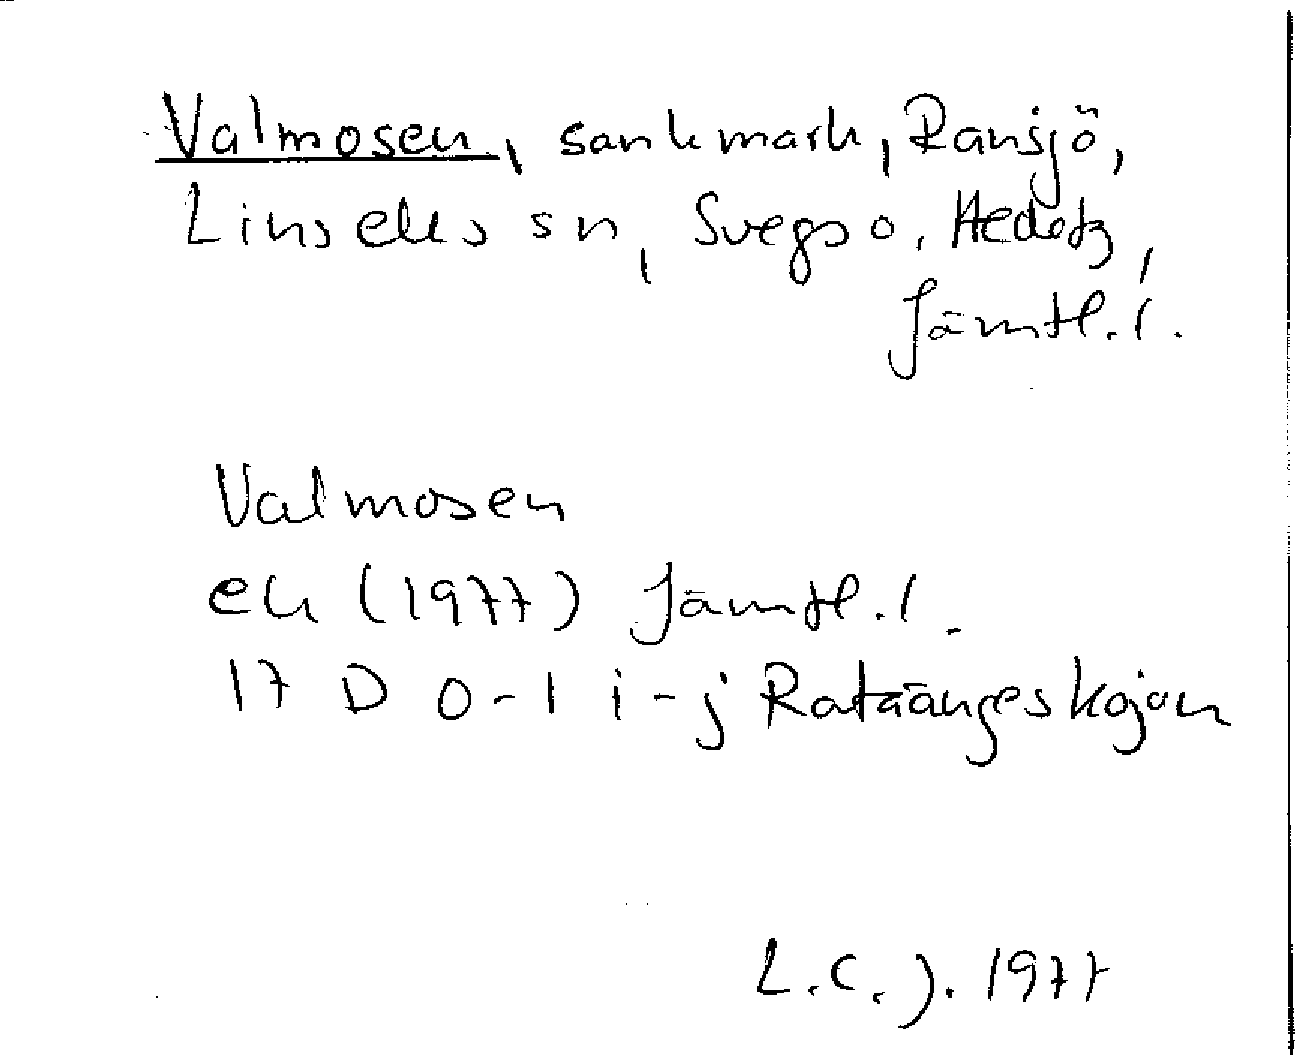 Valmosen, sankmark, Ransjö,
Linsells sn, Svegs o. Hedetg,
Jämtl. l.
Valmosen
ek (1977) Jämtl. l.
17 D 0-1 i-j Rataängeskojan
L.C.J. 1977